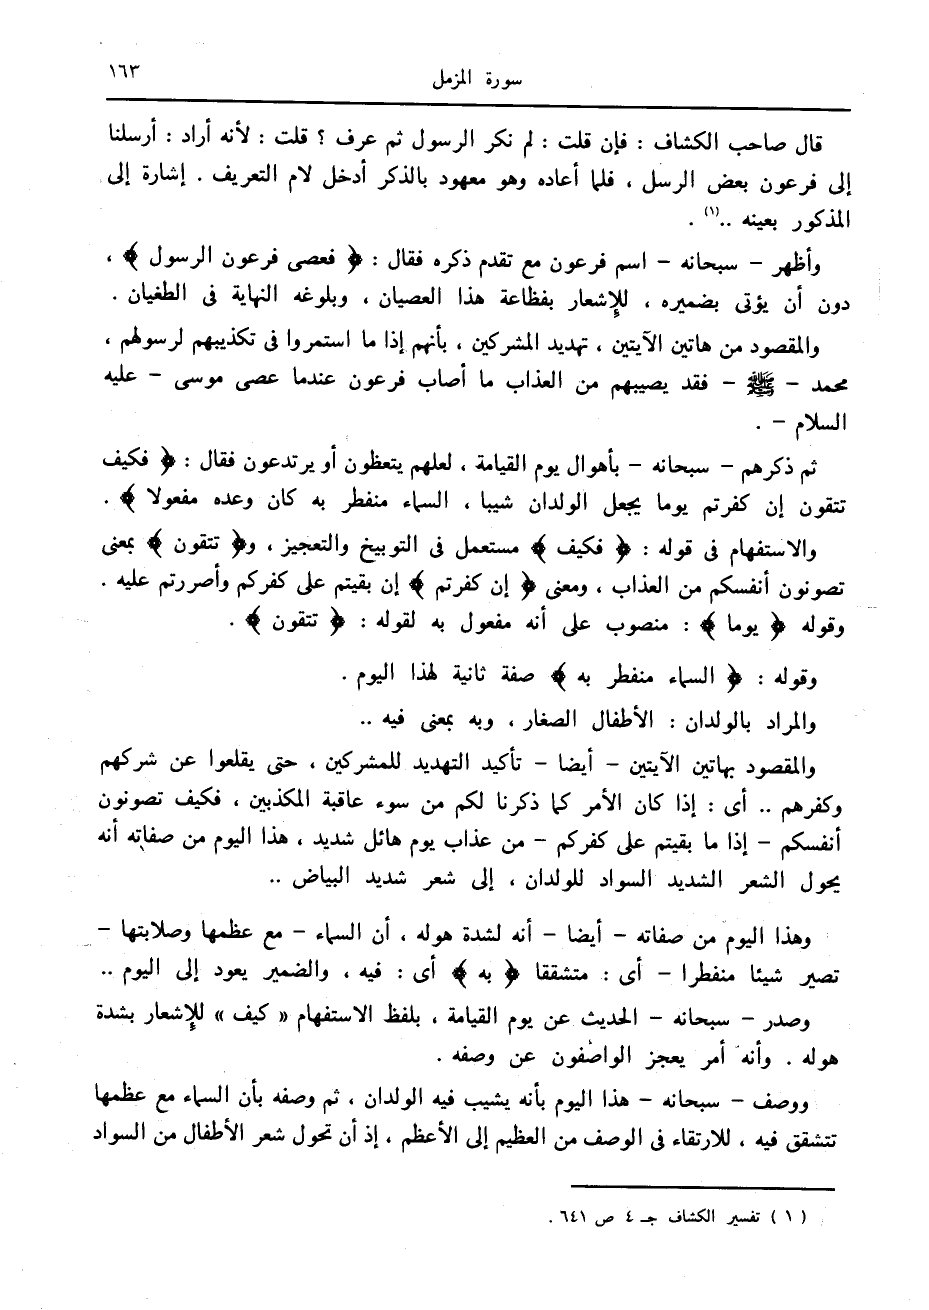 سورة المزمل ١٦٣
قال صاحب الكشاف : فإن قلت : لم نكر الرسول ثم عرف ؟ قلت : لأنه أراد : أرسلنا
إلى فرعون بعض الرسل ، فلما أعاده وهو معهود بالذكر أدخل لام التعريف . إشارة إلى
المذكور بعينه ..(١) .
وأظهر – سبحانه – اسم فرعون مع تقدم ذكره فقال : ﴿ فعصى فرعون الرسول ﴾ ،
دون أن يؤتى بضميره ، للإشعار بفظاعة هذا العصيان ، وبلوغه النهاية فى الطغيان .
والمقصود من هاتين الآيتين ، تهديد المشركين ، بأنهم إذا ما استمروا فى تكذيبهم لرسولهم ،
محمد – ﷺ – فقد يصيبهم من العذاب ما أصاب فرعون عندما عصى موسى – عليه
السلام – .
ثم ذكرهم – سبحانه – بأهوال يوم القيامة ، لعلهم يتعظون أو يرتدعون فقال : ﴿ فكيف
تتقون إن كفرتم يوما يجعل الولدان شيبا ، السماء منفطر به كان وعده مفعولا ﴾ .
والاستفهام فى قوله : ﴿ فكيف ﴾ مستعمل فى التوبيخ والتعجيز ، و﴿ تتقون ﴾ بمعنى
تصونون أنفسكم من العذاب ، ومعنى ﴿ إن كفرتم ﴾ إن بقيتم على كفركم وأصررتم عليه .
وقوله ﴿ يوما ﴾ : منصوب على أنه مفعول به لقوله : ﴿ تتقون ﴾ .
وقوله : ﴿ السماء منفطر به ﴾ صفة ثانية لهذا اليوم .
والمراد بالولدان : الأطفال الصغار ، وبه بمعنى فيه ..
والمقصود بهاتين الآيتين – أيضا – تأكيد التهديد للمشركين ، حتى يقلعوا عن شركهم
وكفرهم .. أى : إذا كان الأمر كما ذكرنا لكم من سوء عاقبة المكذبين ، فكيف تصونون
أنفسكم – إذا ما بقيتم على كفركم – من عذاب يوم هائل شديد ، هذا اليوم من صفاته أنه
يحول الشعر الشديد السواد للولدان ، إلى شعر شديد البياض ..
وهذا اليوم من صفاته – أيضا – أنه لشدة هوله ، أن السماء – مع عظمها وصلابتها –
تصير شيئا منفطرا – أى : متشققا ﴿ به ﴾ أى : فيه ، والضمير يعود إلى اليوم ..
وصدر – سبحانه – الحديث عن يوم القيامة ، بلفظ الاستفهام « كيف » للإشعار بشدة
هوله . وأنه أمر يعجز الواصفون عن وصفه .
ووصف – سبحانه – هذا اليوم بأنه يشيب فيه الولدان ، ثم وصفه بأن السماء مع عظمها
تتشقق فيه ، للارتقاء فى الوصف من العظيم إلى الأعظم ، إذ أن تحول شعر الأطفال من السواد
( ١ ) تفسير الكشاف جـ ٤ ص ٦٤١ .